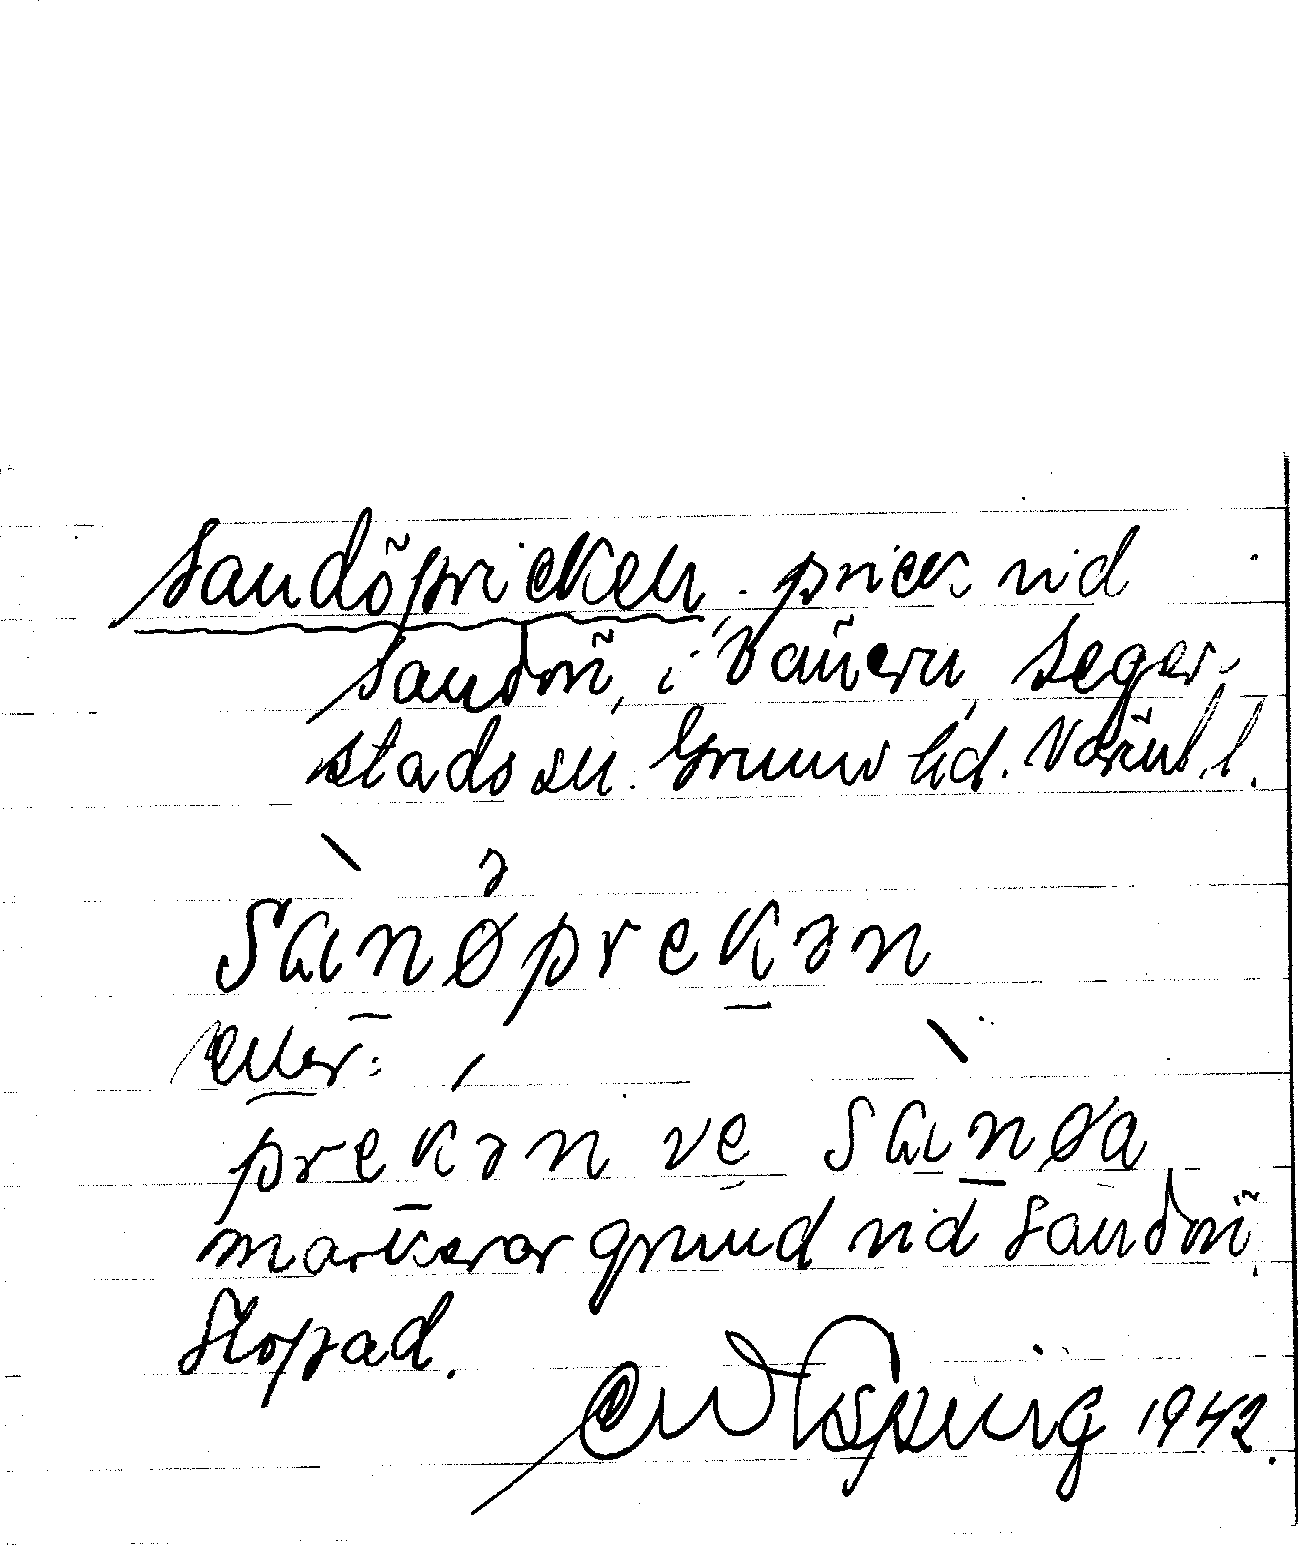 Sandöpricken, prick vid
Sandön, i Vänern, Seger-
stads sn. Grums hd. Värml. l.
sanøprekən
eller:
prekən ve sanøa
markerar grund vid Sandön,
Slopad.
1942.